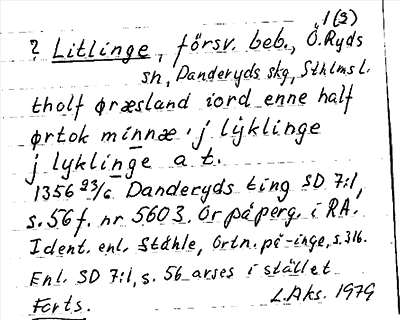 1(2)
? Litlinge, försv. beb., Ö. Ryds
sn, Danderyds skg, Sthlms l.
tholf øræsland iord enne half
ørtok minnæ · j lyklinge
j lyklinge a t.
1356 23/6 Danderyds ting SD 7:1,
s. 56 f. nr 5603. Or på perg. i RA.
Ident. enl. Ståhle, Ortn. på -inge, s. 316.
Enl. SD 7:1, s. 56 avses i stället
Forts. L. Aks. 1979